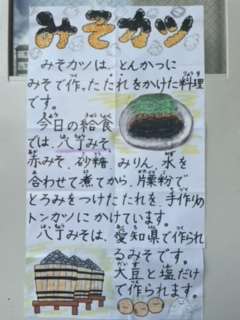 みそカツ
みそカツは、とんかつに
みそで作ったたれをかけた料理
です。
今日の給食
では、八丁みそ、
赤みそ、砂糖、みりん、水を
合わせて煮てから、片栗粉で
とろみをつけたたれを、手作り
トンカツにかけています。
八丁みそは、愛知県で作られ
るみそです。
大豆と塩だけ
で作られます。